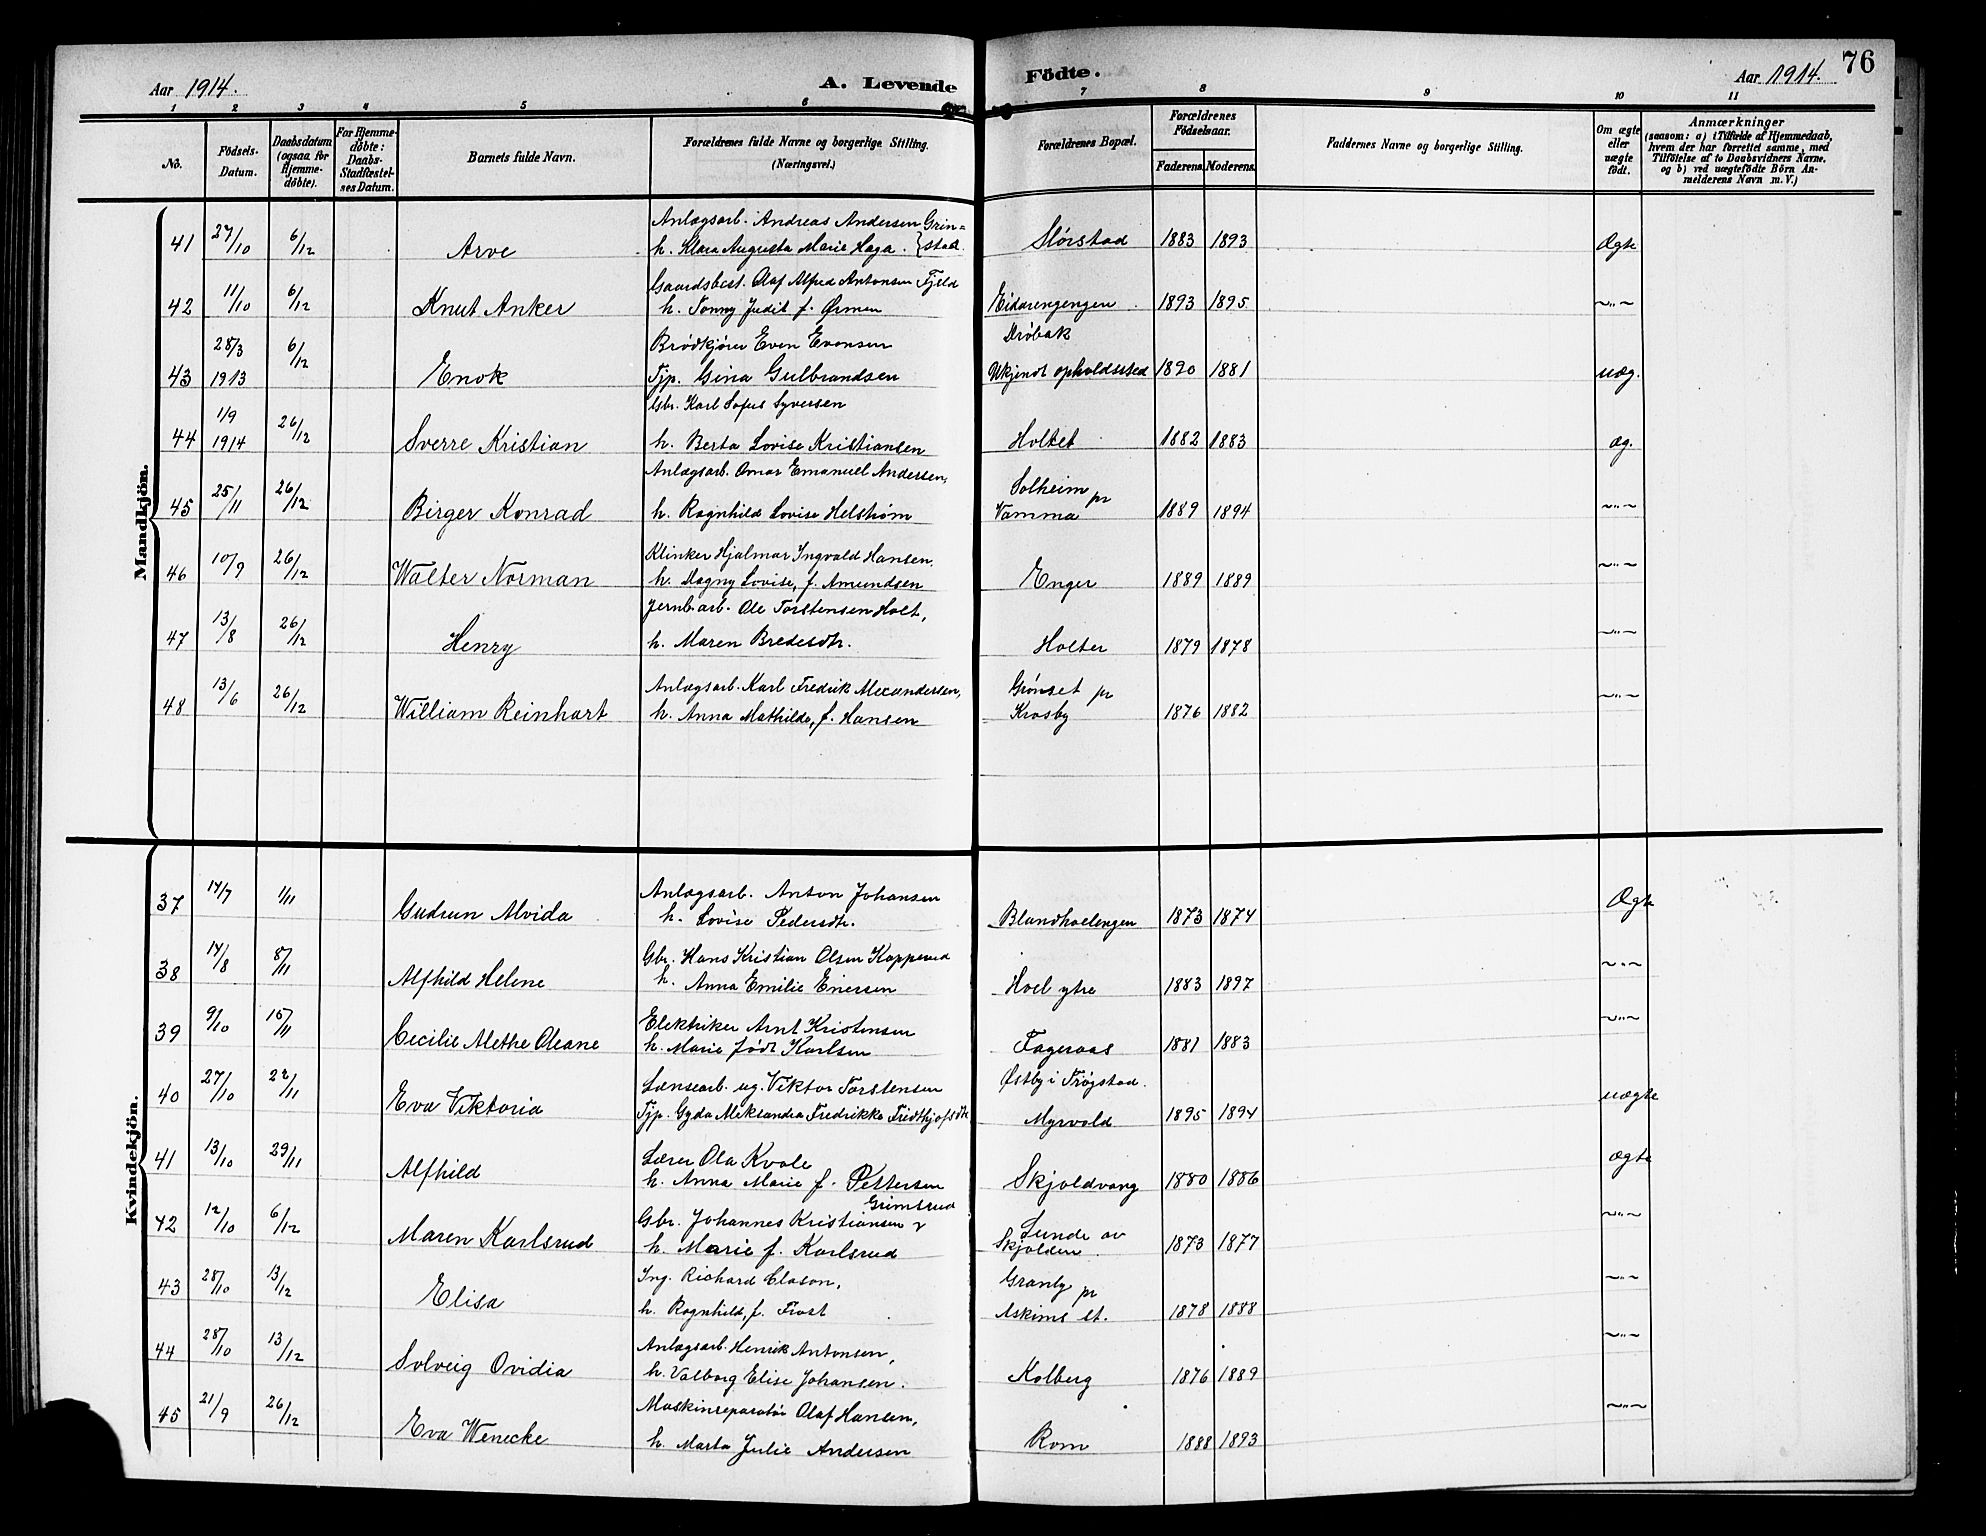 76
Aar 1914.
A. Levende Födte.
Aar 1914.
1 2 3 4 5 6 7 8 9 10 11
No. Födsels-Datum. Daabsdatum (ogsaa for Hjemme-döbte). For Hjemme-döbte: Daabs-Stadfæstel-ses Datum. Barnets fulde Navn. Forældrenes fulde Navne og borgerlige Stilling. (Næringsvei.) Forældrenes Bopæl. Forældrenes Födselsaar. Faderens. Moderens. Faddernes Navne og borgerlige Stilling. Om ægte eller uægte födt. Anmærkninger (saasom: a) i Tilfælde af Hjemmedaab, hvem der har forrettet samme, med Tilföielse af to Daabsvidners Navne, og b) ved uægtefödte Börn An-melderens Navn m. V.)
Mandkjön.
Anlægsarb. Andreas Andersen Grin=
41 27/10 6/12 Arve h. Klara Augusta Marie Haga. stad. Slørstad 1883 1893 Ægte
Gaardsbest. Olaf Alfred Antonsen Fjeld
42 11/10 6/12 Knut Anker h. Tonny Judit f. Ørmen Eidarengengen 1893 1895 ~"~
28/3 6/12 Brødkjører Even Evensen Drøbak
43 1913 Enok Tjp. Gina Gulbrandsen Ukjendt opholdssted 1890 1881 uæg.
1/9 Gbr. Karl Sofus Syversen
44 1914 26/12 Sverre Kristian h. Berta Lovise Kristiansen Holtet 1882 1883 æg.
Anlægsarb. Omar Emanuel Andersen, Solheim pr
45 25/11 26/12 Birger Konrad h. Ragnhild Lovise Helstrøm Vamma 1889 1894 ~"~
Klinker Hjalmar Ingvald Hansen.
46 10/9 26/12 Walter Norman h. Dagny Lovise, f. Amundsen Enger 1889 1889 ~"~
Jernb.arb. Ole Torstensen Holt,
47 13/8 26/12 Henry h. Maren Bredesdtr. Holter 1879 1878 ~"~
Anlægsarb. Karl Fredrik Alexandersen, Grønset pr
48 13/6 26/12 William Reinhart h. Anna Mathilde, f. Hansen Krosby 1876 1882 ~"~
Kvindekjön.
Anlægsarb. Anton Johansen
37 14/7 1/11 Gudrun Alvida h. Lovise Pedersdtr. Blandhoelengen 1873 1874 Ægte
Gbr. Hans Kristian Olsen Kopperud
38 14/8 8/11 Alfhild Helene h. Anna Emilie Enersen Hoel ytre 1883 1897 ~"~
Elektriker Arnt Kristensen
39 9/10 15/11 Cecilie Alethe Oleane h. Marie født Karlsen Fageraas 1881 1883 ~"~
Lænsearb. ug. Viktor Torstensen Østby i Trøgstad.
40 27/10 22/11 Eva Viktoria Tjp. Gyda Aleksandra Fredrikke Fredthjofsdtr Myrvold 1895 1894 uægte
Lærer Ola Kvale
41 13/10 29/11 Alfhild h. Anna Marie f. Pettersen Skjoldvang 1880 1886 ægte
Grimsrud
Gbr. Johannes Kristiansen Lunde av
42 12/10 6/12 Maren Karlsrud h. Marie f. Karlsrud Skjolden 1873 1877 ~"~
Ing. Richard Clason, Granly pr
43 28/10 13/12 Elisa h. Ragnhild, f. Frost Askims st. 1878 1888 ~"~
Anlægsarb. Henrik Antonsen,
44 28/10 13/12 Solveig Ovidia h. Valborg Elise Johansen. Kolberg 1876 1889 ~"~
Maskinreparatør Olaf Hansen,
45 21/9 26/12 Eva Wenecke h. Marta Julie Andersen Rom 1888 1893 ~"~